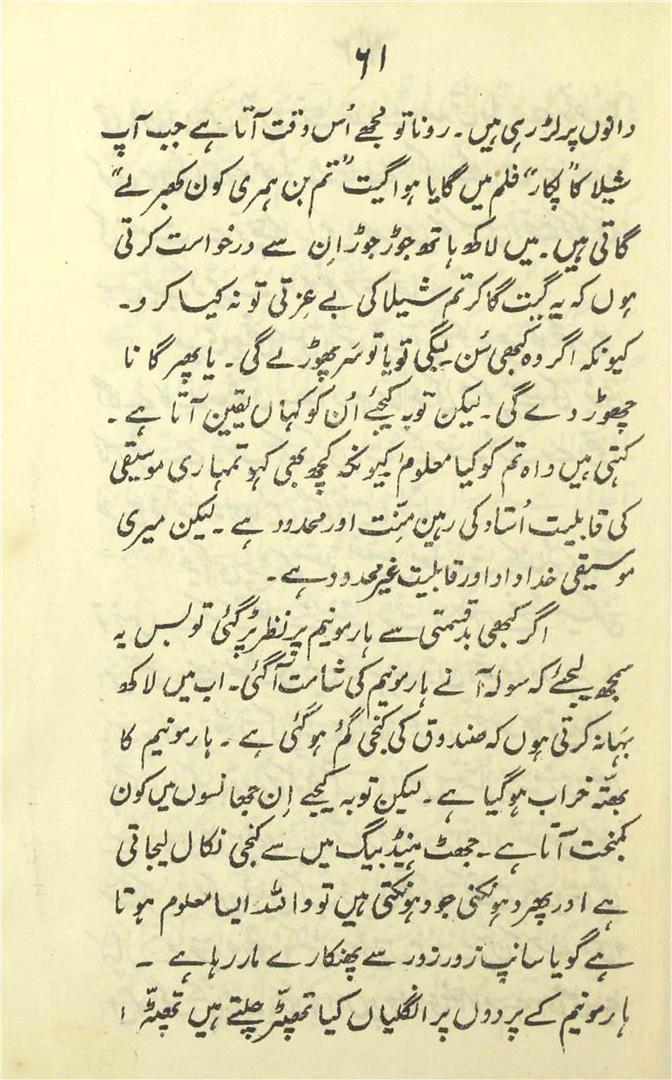 ۶۱
دانوں پر لڑ رہی ہیں۔ رونا تو مجھے اُس وقت آتا ہے جب آپ
شیلا کا "پکار" فلم میں گایا ہوا گیت "تم بن ہمری کون کھبر لے"
گاتی ہیں۔ میں لاکھ ہاتھ جوڑ جوڑ اِن سے درخواست کرتی
ہوں کہ یہ گیت گا کر تم شیلا کی بے عزتی تو نہ کیا کرو۔
کیونکہ اگر وہ کبھی سُن لیگی تو یا تو سَر پھوڑ لے گی۔ یا پھر گانا
چھوڑ دے گی۔ لیکن توبہ کیجئے اُن کو کہاں یقین آتا ہے۔
کہتی ہیں واہ تم کو کیا معلوم کیونکہ کچھ بھی کہو تمہاری موسیقی
کی قابلیت اُستاد کی رہینِ منّت اور محدود ہے۔ لیکن میری
موسیقی خداداد اور قابلیت غیر محدود ہے۔
اگر کبھی بدقسمتی سے ہارمونیم پر نظر پڑ گئی تو بس یہ
سمجھ لیجئے کہ سولہ آنے ہارمونیم کی شامت آ گئی۔ اب میں لاکھ
بہانہ کرتی ہوں کہ صندوق کی کنجی گم ہو گئی ہے۔ ہارمونیم کا
بھتّہ خراب ہو گیا ہے۔ لیکن توبہ کیجے اِن جھانسوں میں کون
کمبخت آتا ہے۔ جھٹ ہینڈ بیگ میں سے کنجی نکال لیجاتی
ہے اور پھر دہونکنی جو دہونکتی ہیں تو واللہ ایسا معلوم ہوتا
ہے گویا سانپ زور زور سے پھنکارے مار رہا ہے۔
ہارمونیم کے پردوں پر انگلیاں کیا تھپٹّر چلتے ہیں تھپٹّر!